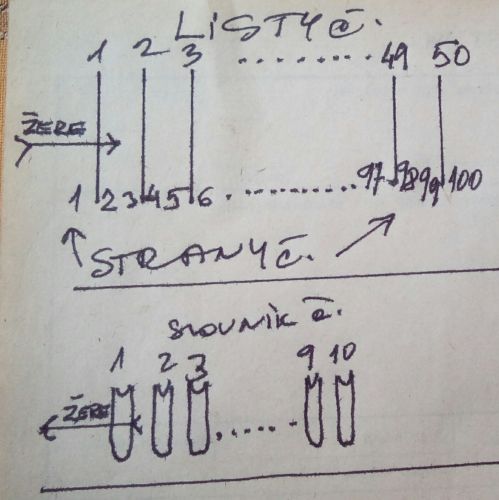 LISTY Č.
1 2 3 ........ 49 50
ŽERE
1 2 3 4 5 6 ......... 97 98 99 100
STRANY Č.
SLOVNÍK Č.
1 2 3 9 10
ŽERE ........